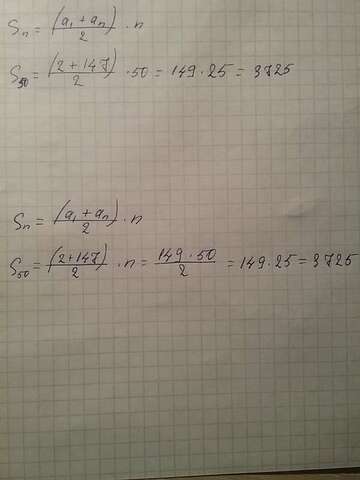 Sₙ = (a₁ + aₙ)/2 · n
S₅₀ = (2 + 147)/2 · 50 = 149 · 25 = 3725
Sₙ = (a₁ + aₙ)/2 · n
S₅₀ = (2 + 147)/2 · n = 149 · 50/2 = 149 · 25 = 3725